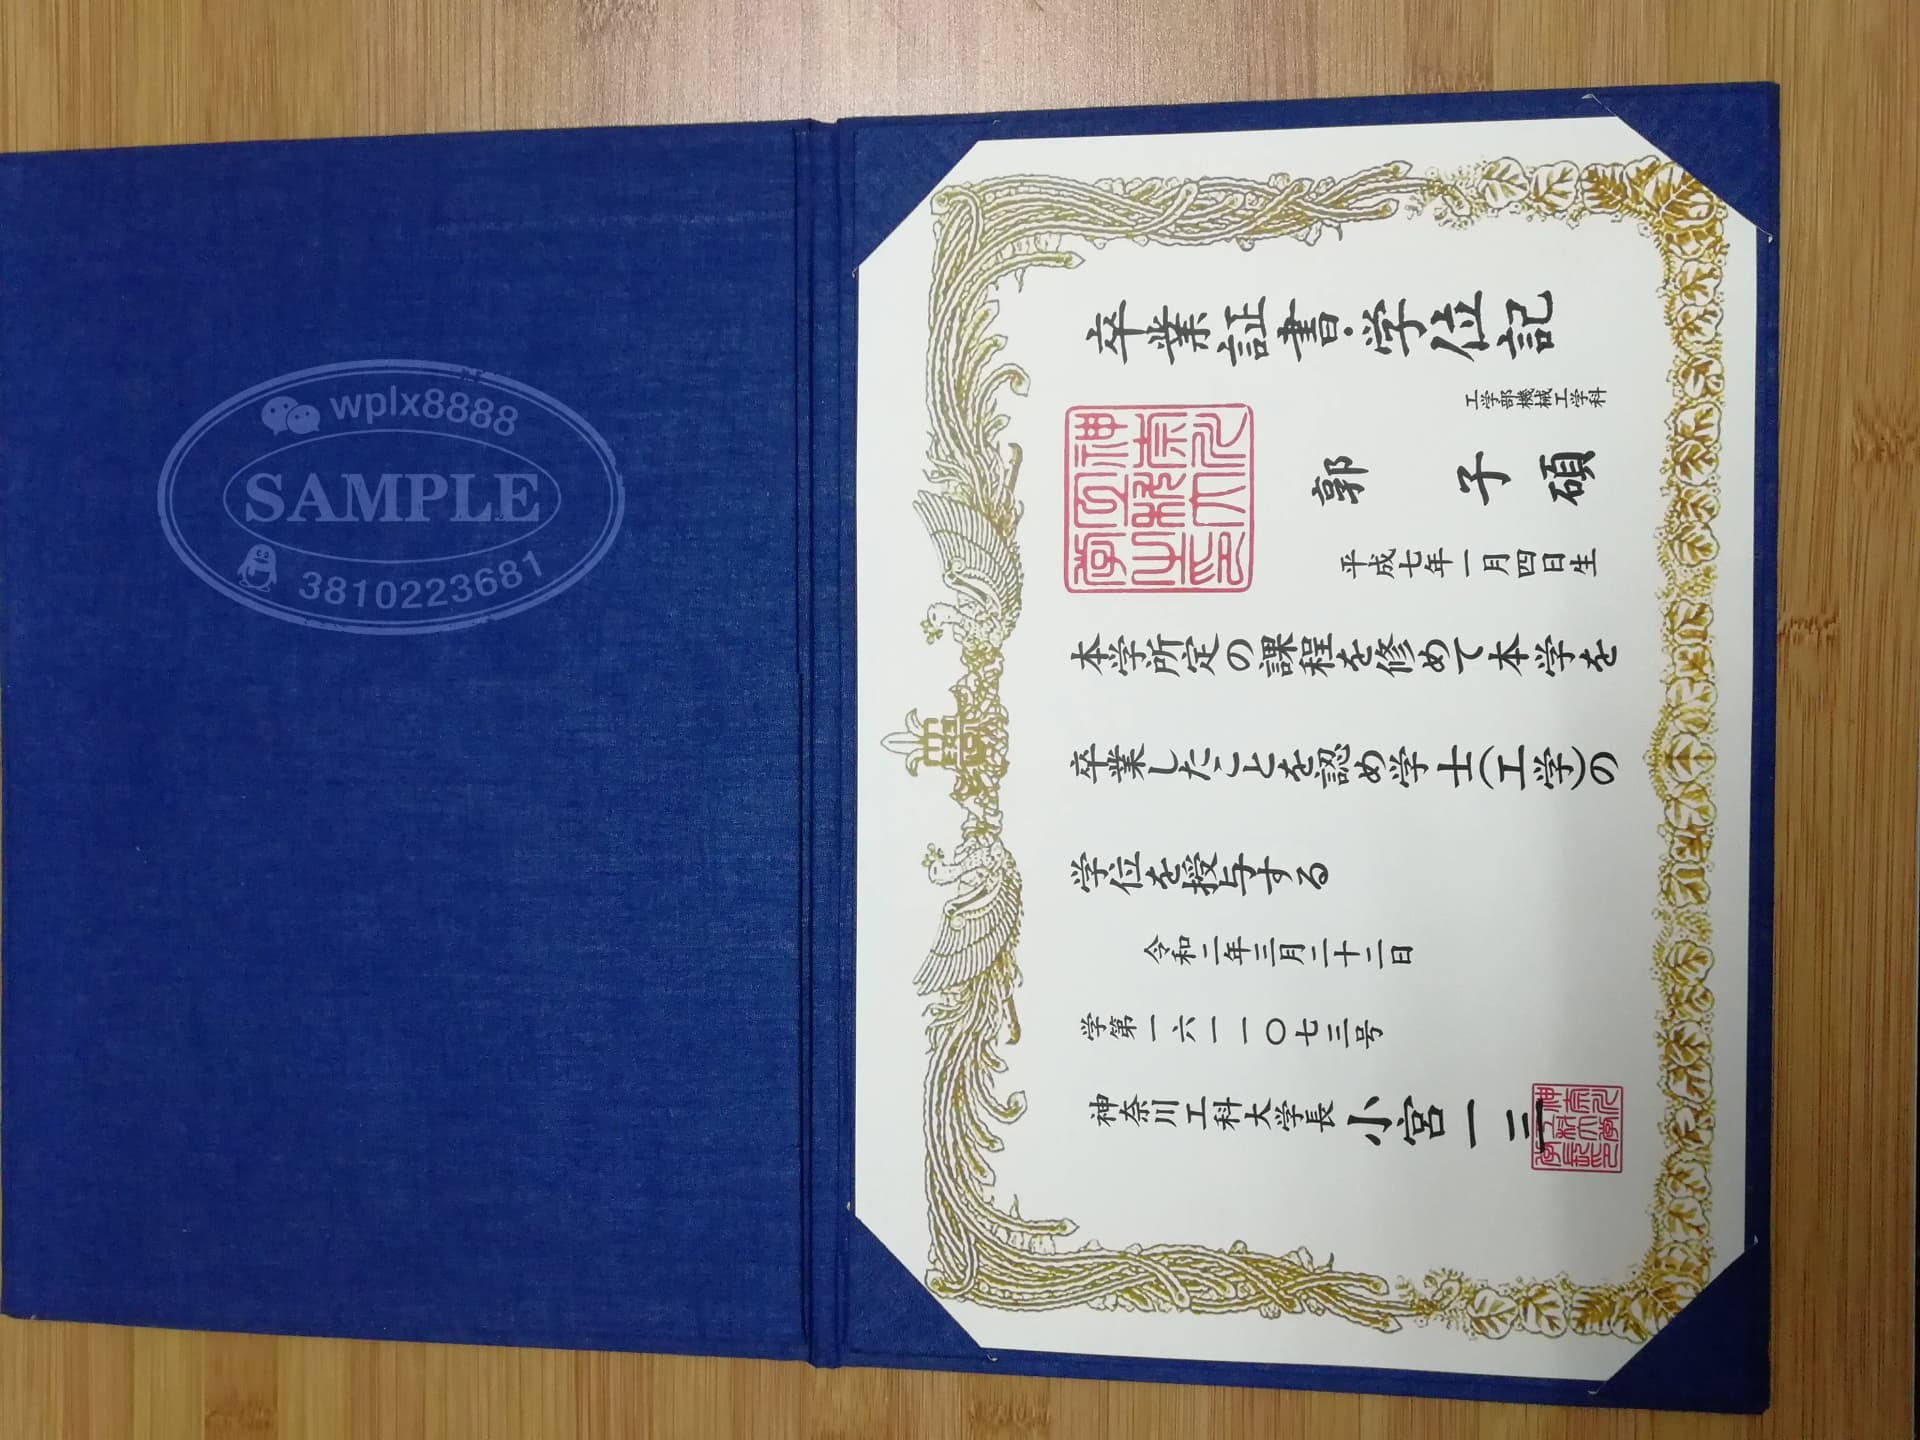 卒業証書・学位記
工学部機械工学科
郭子碩
平成七年一月四日生
本学所定の課程を修めて本学を
卒業したことを認め学士(工学)の
学位を授与する
令和二年三月二十二日
学第一六一一〇七三号
神奈川工科大学長 小宮一三
wplx8888
SAMPLE
3810223681